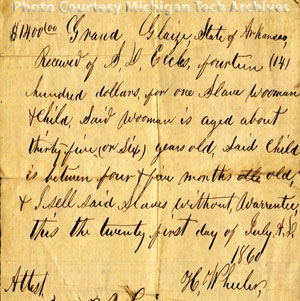 Photo Courtesy Michigan Tech Archives
$1400.00 Grand Glaize, State of Arkansas,
Received of S. D. Eccles, fourteen (14)
hundred dollars, for one Slave woman
& Child, Said Wooman is aged about
thirty five (or Six) years old, Said Child
is between four & five months old,
& I sell said slaves without Warrentee,
this the twenty first day of July A.D.
1860
Attest H. Wheeler